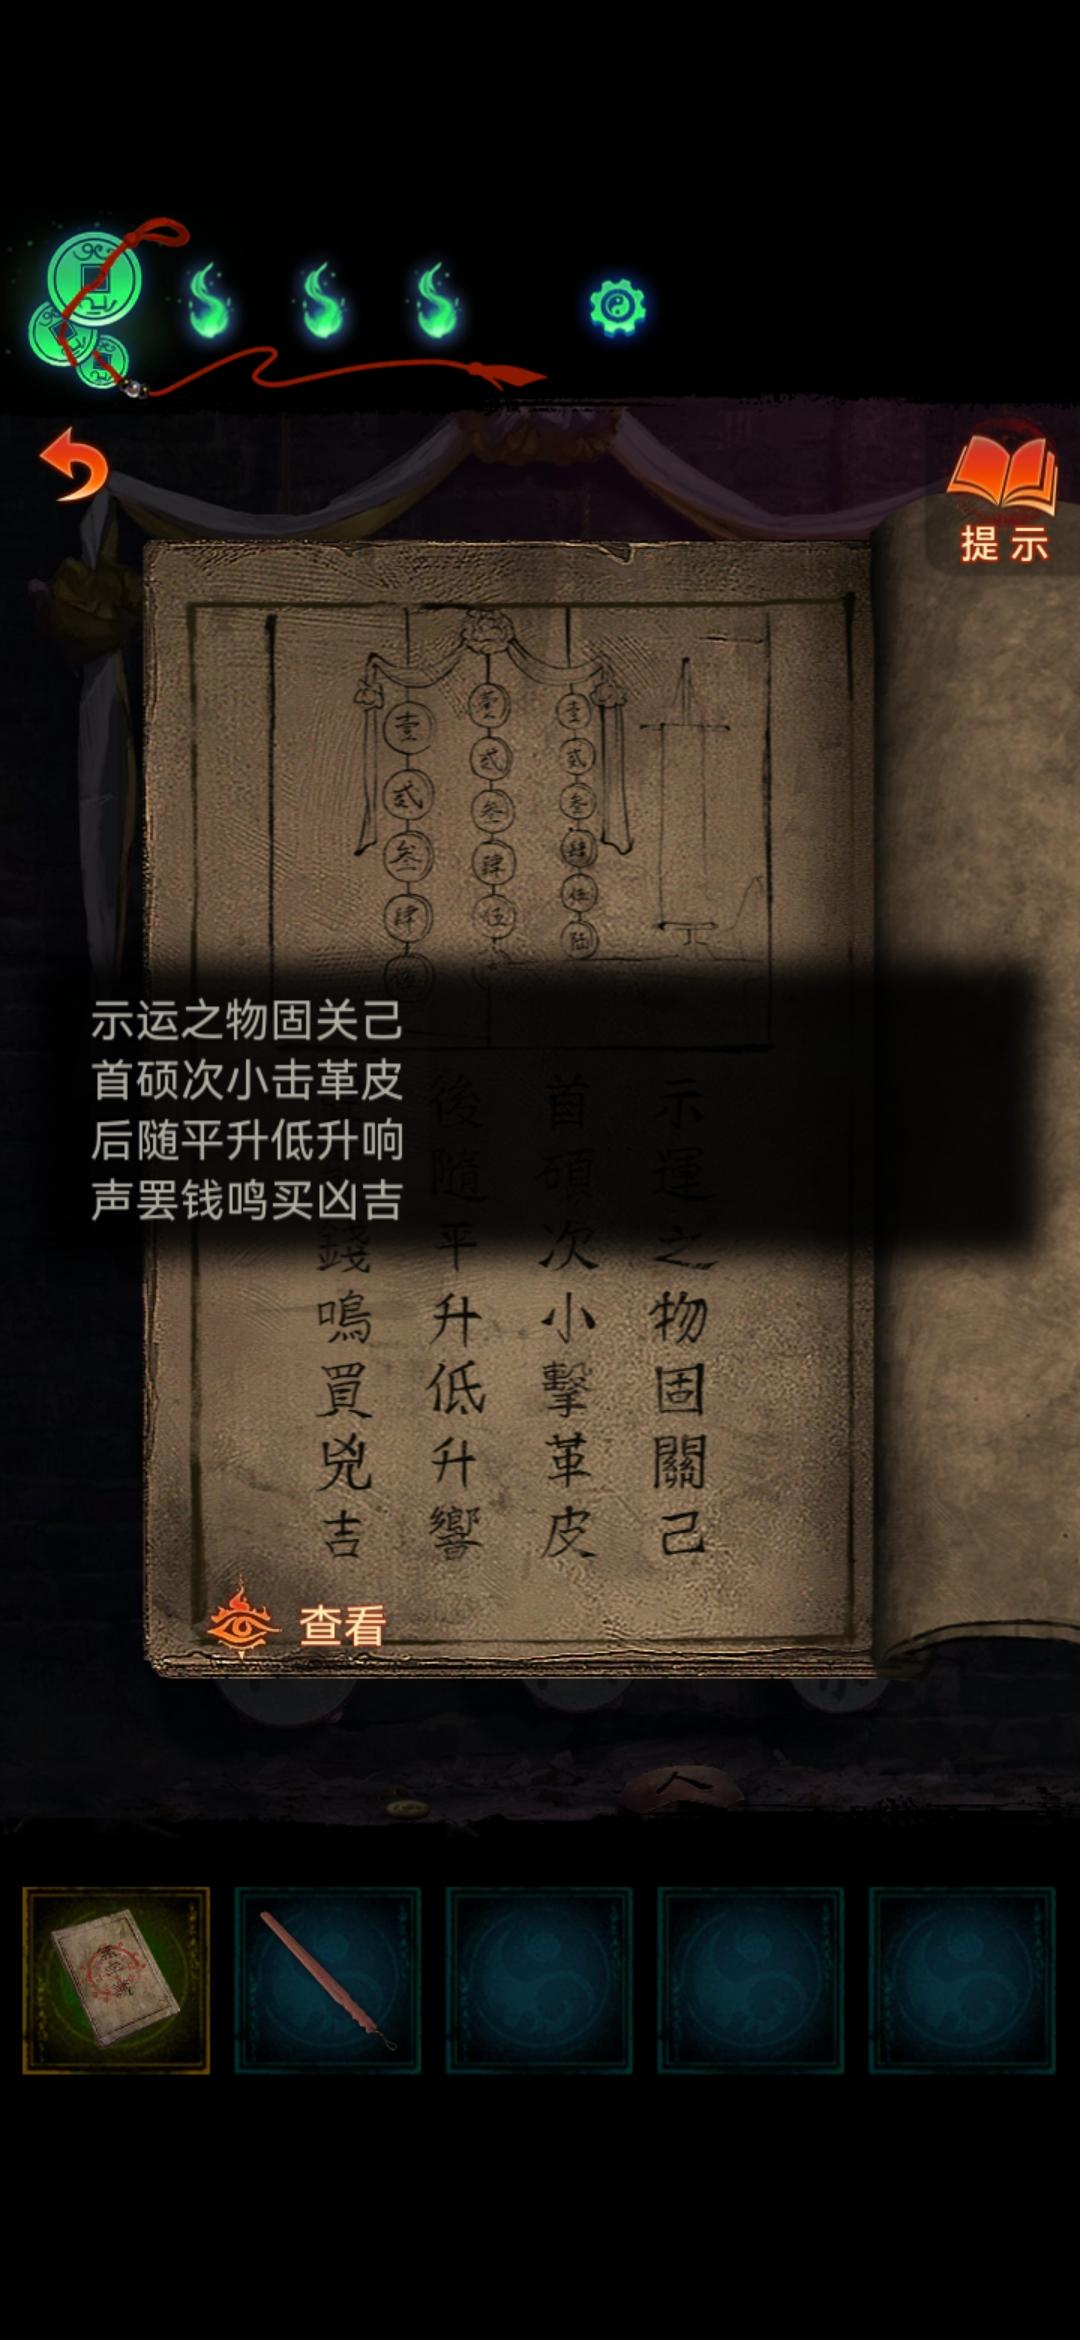 提示
壹 壹 壹
贰 贰 贰
叁 叁 叁
肆 肆 肆
伍 伍 伍
陆
示运之物固关己
首硕次小击革皮
后随平升低升响
声罢钱鸣买凶吉
示運之物固關己
首碩次小擊革皮
後隨平升低升響
錢鳴買兇吉
查看
人